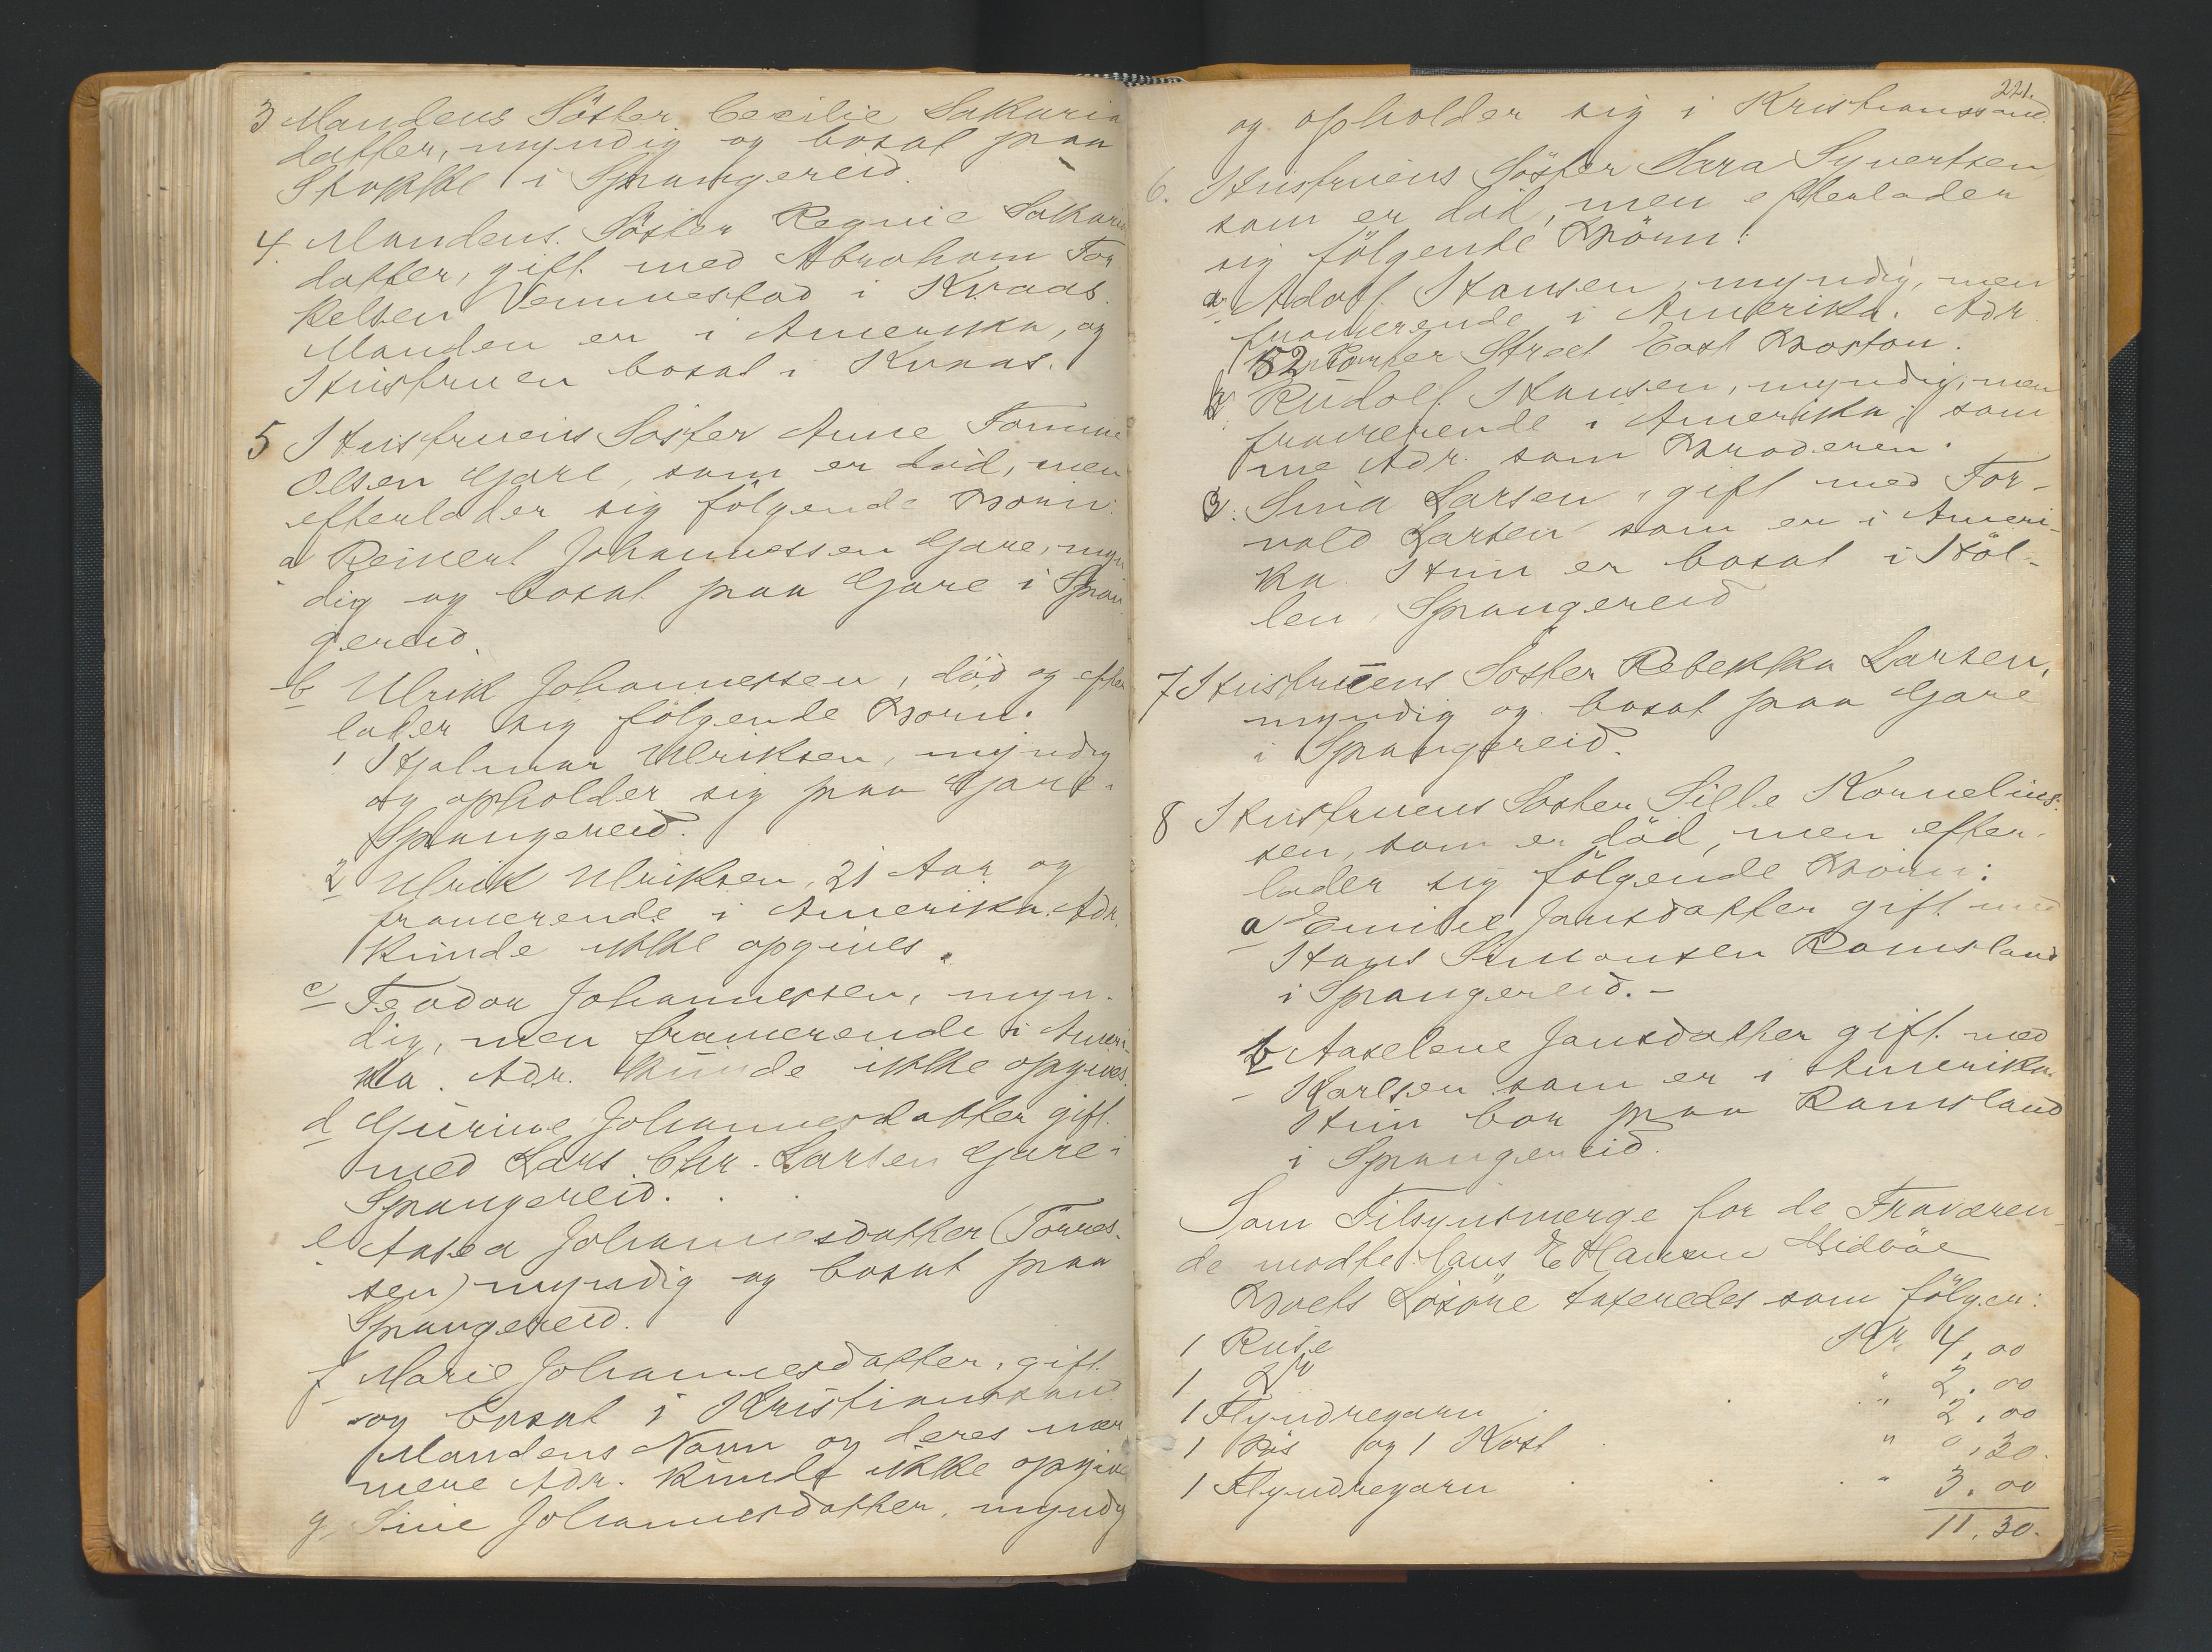 3 Mandens Söster Cecilie Sakaria
datter, myndig og bosat paa
Stokke i Spangereid.
4. Mandens Söster Regine Sakaria
datter, gift med Abraham Tor
kelsen Vennestad i Kvaas.
Manden er i Amerika, og
Hustruen bosat i Kvaas.
5 Hustruens Söster Anne Tomine
Olsen Gare, som er död, men
efterlader sig fölgende Börn:
a Reinert Johannessen Gare, myn
dig og bosat paa Gare i Span
gereid.
b Ulrik Johannessen, död og efter
lader sig fölgende Börn.
1 Hjalmar Ulriksen, myndig
og opholder sig paa Gare i
Spangereid.
2 Ulrik Ulriksen, 21 Aar og
fraværende i Amerika. Adr.
kunde ikke opgives.
c Teodor Johannessen, myn-
dig, men fraværende i Ameri-
ka. Adr. kunde ikke opgives.
d Gurine Johannesdatter gift
med Lars Chr. Larsen Gare i
Spangereid.
e Aasea Johannesdatter (Törres-
sen) myndig og bosat paa
Spangereid.
f Marie Johannesdatter, gift
og bosat i Kristianssand
Mandens Navn og deres nær
mere Adr. kunde ikke opgives
g. Sine Johannesdatter, myndig
221.
og opholder sig i Kristianssand.
6. Hustruens Söster Sara Syvertsen
som er död, men efterlader
sig fölgende Börn:
a Adolf Hansen, myndig, men
fraværende i Amerika. Adr.
52 Porter Street East Boston.
b Rudolf Hansen, myndig, men
fraværende i Amerika, sam
me Adr. som Broderen.
3. Sina Larsen, gift med Tor-
vald Larsen som er i Ameri-
ka. Hun er bosat i Höl-
len, Spangereid
7 Hustruens Söster Rebekka Larsen,
myndig og bosat paa Gare
i Spangereid.
8 Hustruens Söster Sille Kornelius-
sen, som er död, men efter-
lader sig fölgende Börn:
a Emilie Jansdatter gift med
Hans Simonsen Ramsland
i Spangereid. -
b Aaselene Jansdatter gift med
Karlsen som er i Amerika
Hun bor paa Ramsland
i Spangereid.
Som Tilsynsverge for de Fraværen-
de mödte Hans E Hansen Midböe
Boets Lösöre taxeredes som fölger:
1 Ruse Kr. 4,00
1 do " 2,00
1 Flyndregarn " 2,00
1 og 1 Kost " 0,30.
1 Flyndregarn " 3,00
11,30.